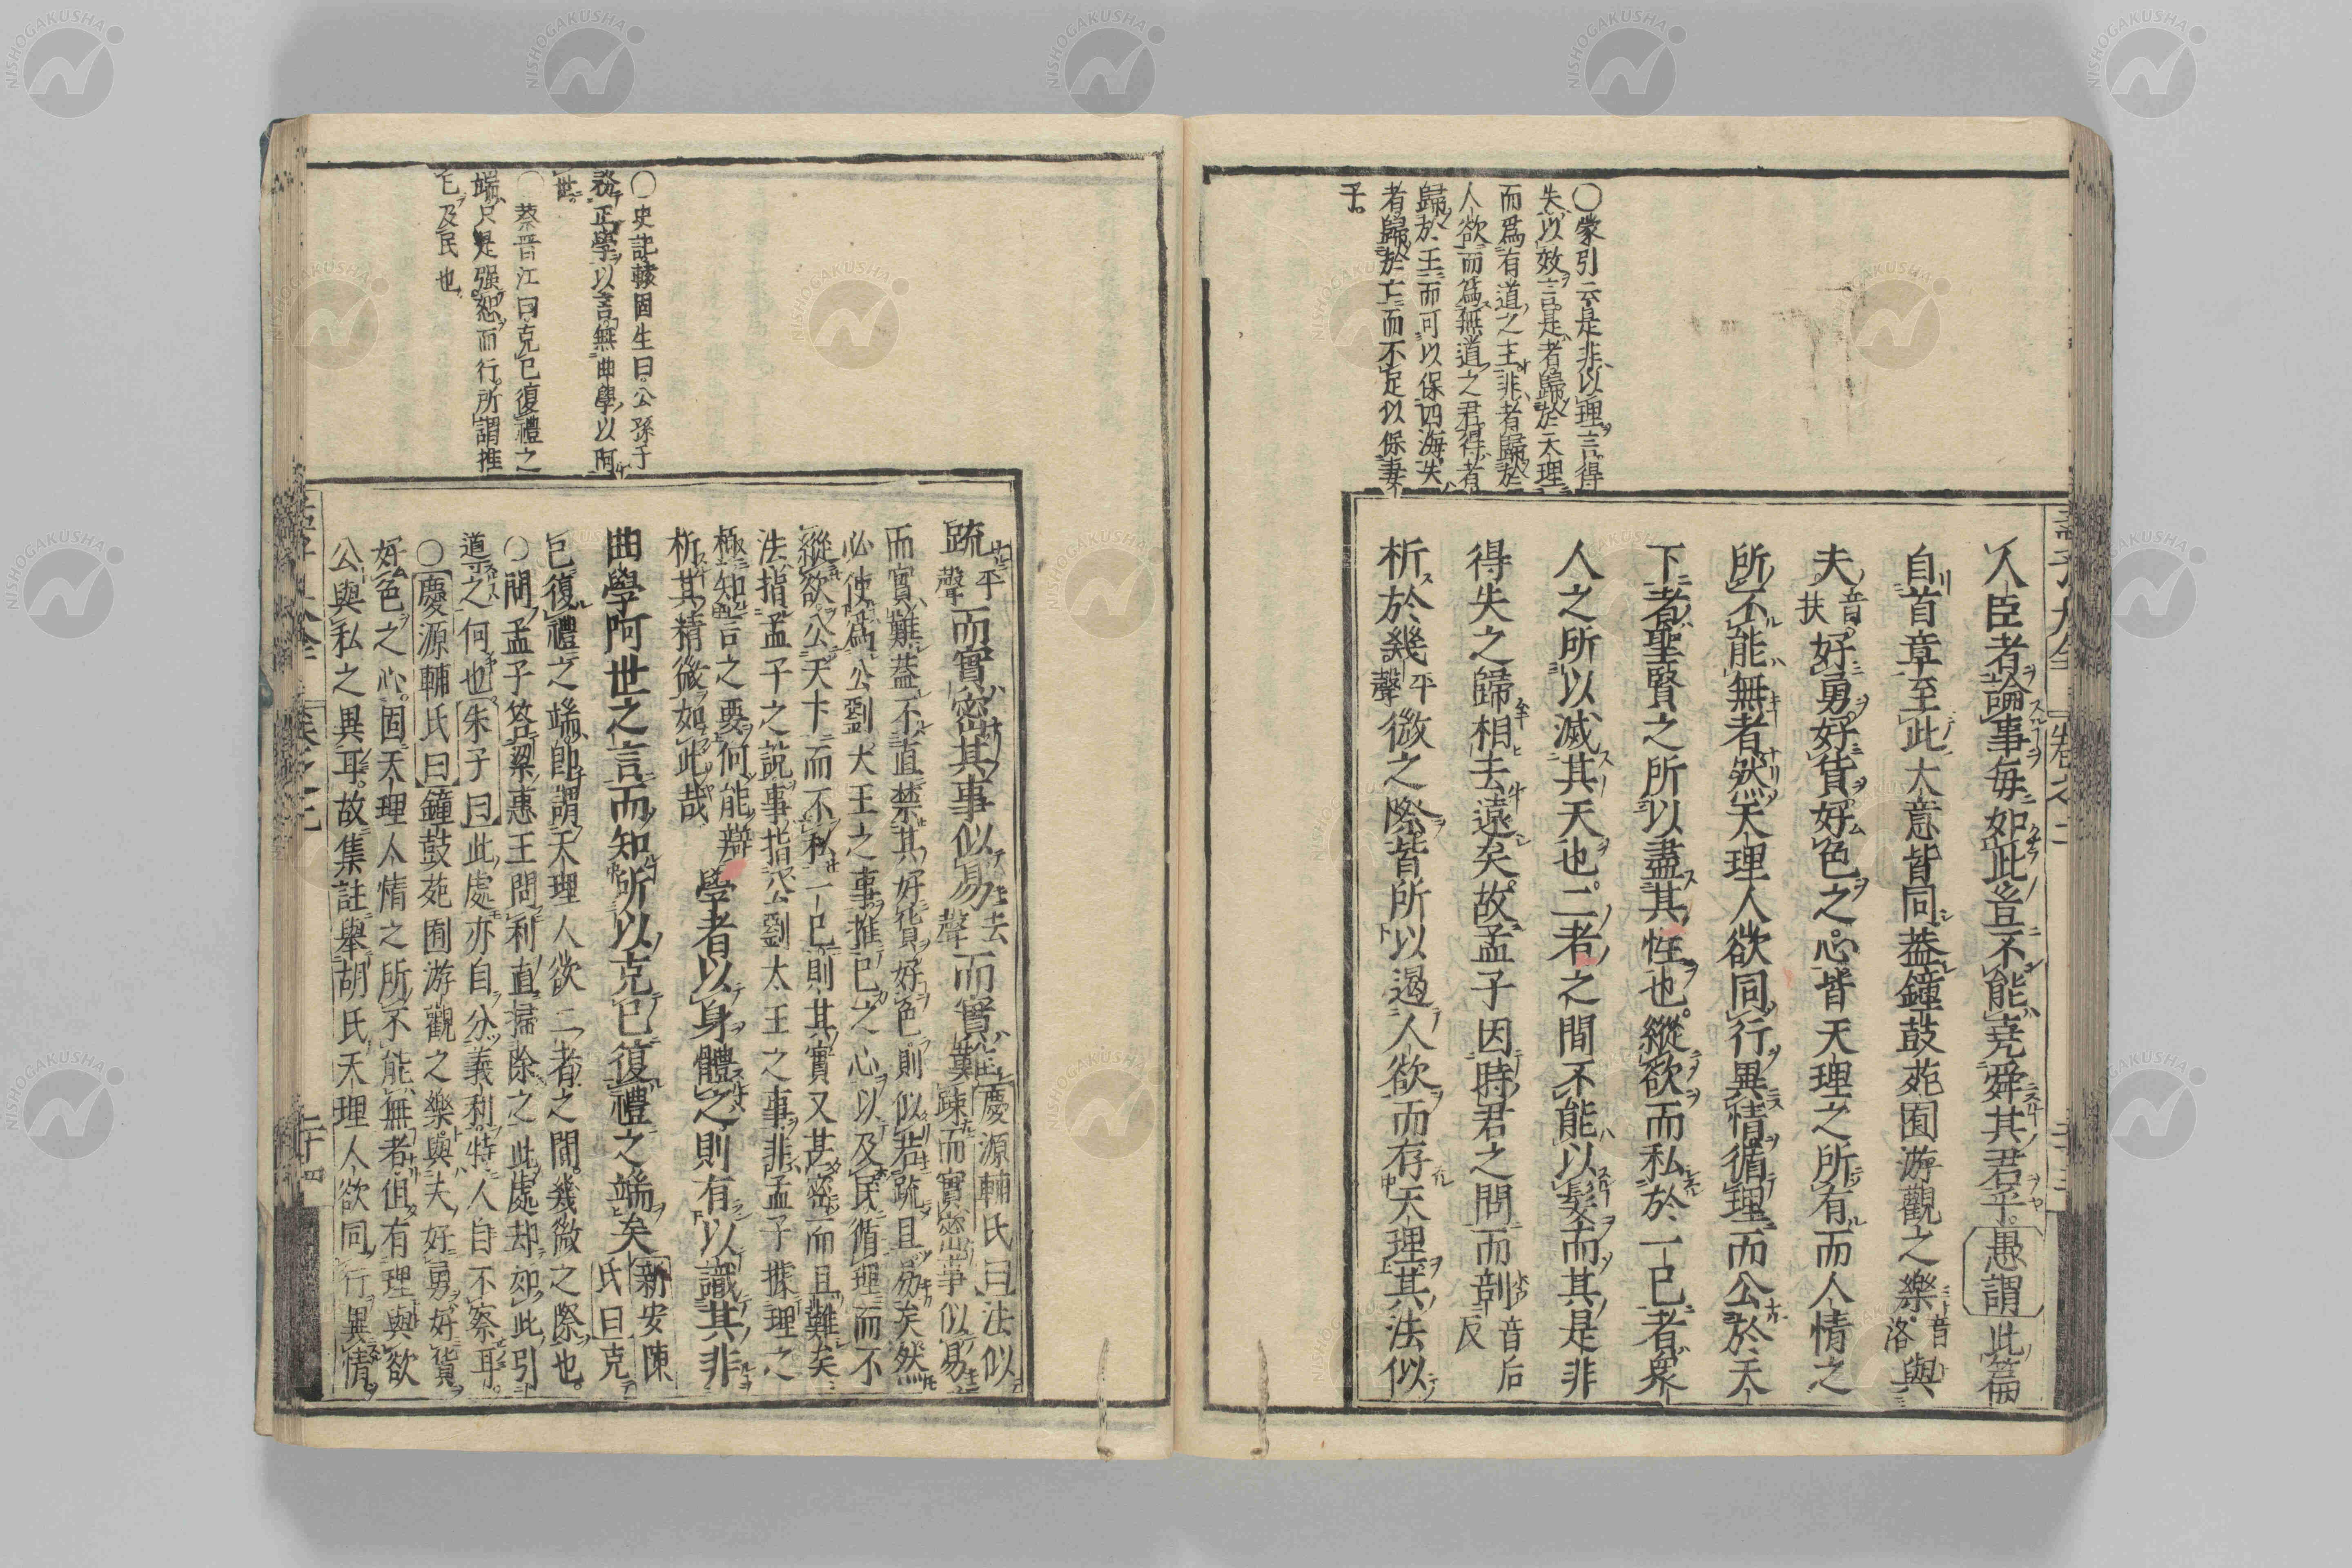 ○蒙引云是非以理言得
失以效言是者歸於天理
而爲有道之主非者歸於
人欲而爲無道之君得者
歸於王而可以保四海失
者歸於亡而不足以保妻
子
人臣者論事毎如此豈不能堯舜其君乎愚謂此篇
自首章至此大意皆同蓋鐘鼓苑囿游觀之樂音洛與
夫音扶好勇好貨好色之心皆天理之所有而人情之
所不能無者然天理人欲同行異情循理而公於天
下者聖賢之所以盡其性也縱欲而私於一己者衆
人之所以滅其天也二者之間不能以髮而其是非
得失之歸相去遠矣故孟子因時君之問而剖音后反
析於幾平聲微之際皆所以遏人欲而存天理其法似
孟子大全 卷之二
○史記轅固生曰公孫子
務正學以言無曲學以阿
世
○蔡晉江曰克己復禮之
端只是强恕而行所謂推
己及民也
疏平聲而實密其事似易去聲而實難慶源輔氏曰法似
疎而實密事似易
而實難蓋不直禁其好貨好色則似若疏且易矣然
必使爲公劉大王之事推己之心以及民循理而不
縱欲公天下而不私一己則其實又甚密而且難矣
法指孟子之說事指公劉太王之事非孟子據理之
極知言之要何能辯
析其精微如此哉
學者以身體之則有以識其非
曲學阿世之言而知所以克己復禮之端矣新安陳氏曰克
己復禮之端卽謂天理人欲二者之間幾微之際也
○問孟子答梁惠王問利直掃除之此處却如此引
導之何也朱子曰此處亦自分義利特人自不察耳
○慶源輔氏曰鐘鼓苑囿游觀之樂與夫好勇好貨
好色之心固天理人情之所不能無者但有理與欲
公與私之異耳故集註舉胡氏天理人欲同行異情